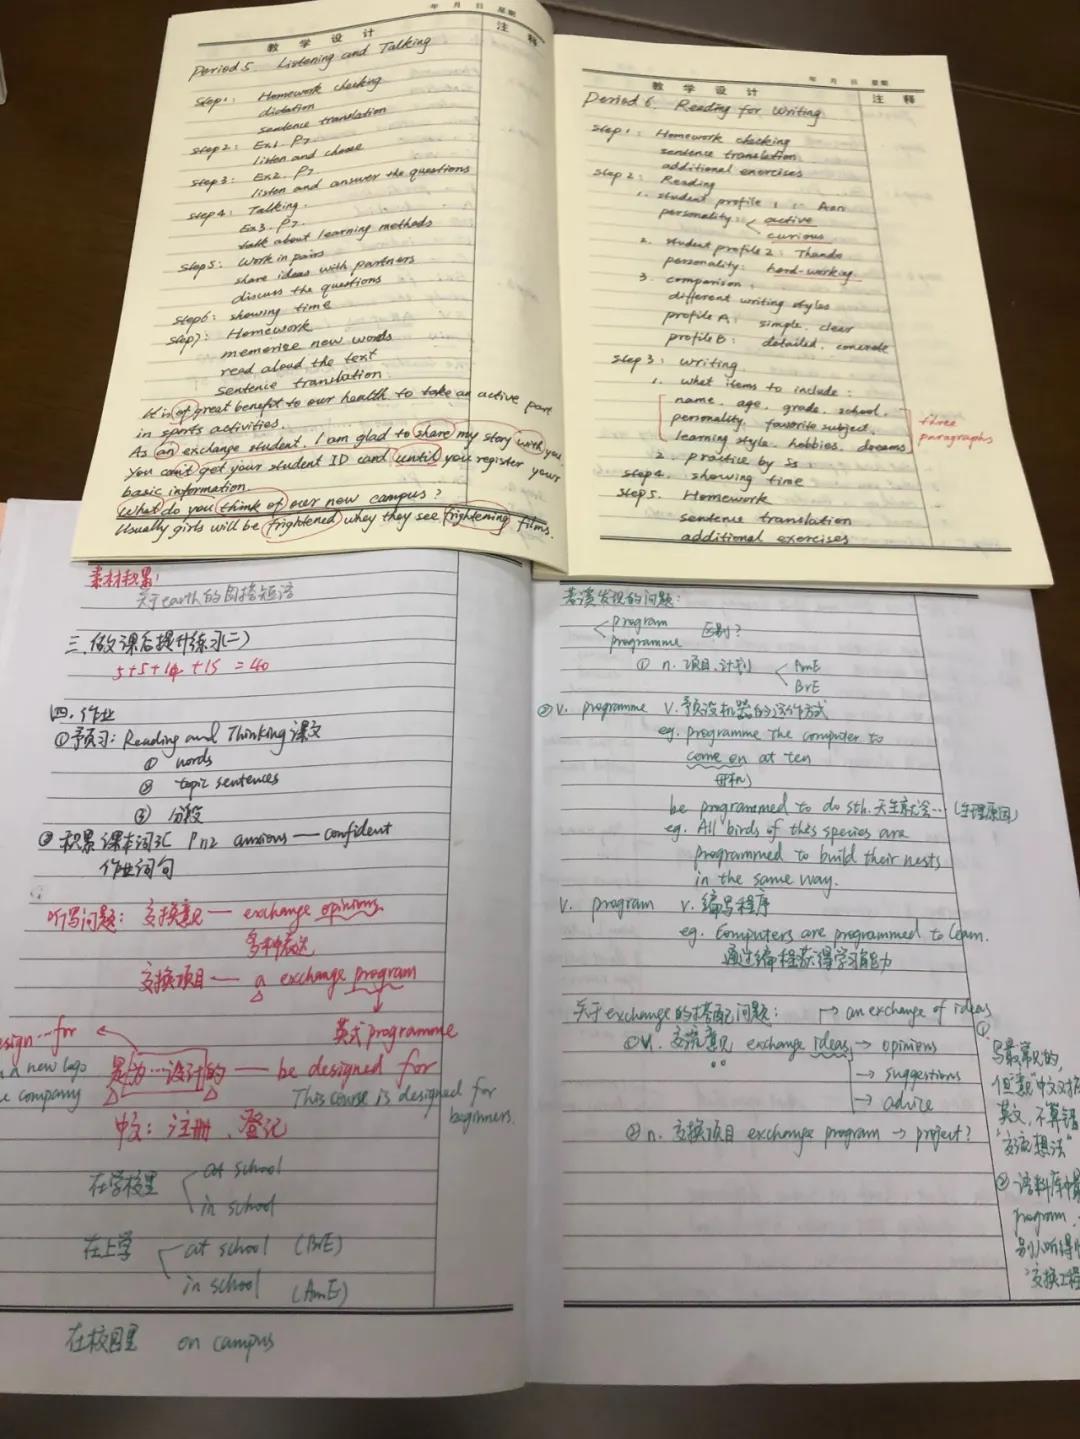 年 月 日 星期
教 学 设 计
注 释
Period 5. Listening and Talking
Step 1: Homework checking
dictation
sentence translation
Step 2: Ex1. P7
listen and choose
Step 3: Ex2. P7
listen and answer the questions
Step 4: Talking.
Ex3. P7
talk about learning methods
Step 5: Work in pairs
share ideas with partners
discuss the questions
Step 6: showing time
Step 7: Homework
memorize new words
read aloud the text
sentence translation
It is of great benefit to our health to take an active part
in sports activities.
As an exchange student, I am glad to share my story with you.
You can't get your student ID card until you register your
basic information.
What do you think of our new campus?
Usually girls will be frightened whey they see frightening films.
年 月 日 星期
教 学 设 计
注 释
Period 6. Reading for Writing
Step 1: Homework checking
sentence translation
additional exercises
Step 2: Reading
1. student profile 1: Ann
personality: active
curious
2. student profile 2: Thando
personality: hard-working
3. comparison:
different writing styles
profile A: simple, clear
profile B: detailed, concrete
Step 3: writing
1. what items to include:
name, age, grade, school,
personality, favorite subject,
learning style, hobbies, dreams
three
paragraphs
2. practice by Ss:
Step 4. showing time
Step 5. Homework
sentence translation
additional exercises
素材积累:
关于earth的固搭短语
三、做课后提升练习(二)
5+5+14+15 =40
四、作业
①预习: Reading and Thinking 课文
① words
② topic sentences
③ 分段
② 积累课本词汇 P112 anxious — confident
作业词句
听写问题: 交换意见 — exchange opinions
多种表达
交换项目 — a exchange program
英式programme
design…for
a new logo
company
是为…设计的 — be designed for
This course is designed for
beginners.
中文: 注册、登记
在学校里 at school
in school
在上学 at school (BrE)
in school (AmE)
在校园里 on campus
备课发现的问题:
program
programme 区别?
① n. 项目,计划 AmE
BrE
② v. programme v. 预设机器的运作方式
eg. programme the computer to
come on at ten
开机
be programmed to do sth. 天生就会… (生理原因)
eg. All birds of this species are
programmed to build their nests
in the same way.
v. program v. 编写程序
eg. Computers are programmed to learn.
通过编程获得学习能力
关于exchange的搭配问题: → an exchange of ideas
①v. 交流意见 exchange ideas → opinions
→ suggestions
→ advice
② n. 交换项目 exchange program → project?
①
写最常见的,
但"意见"中文对
英文, 不算错
"交流想法"
② 语料库中最
program,
别人听得
"交换工程